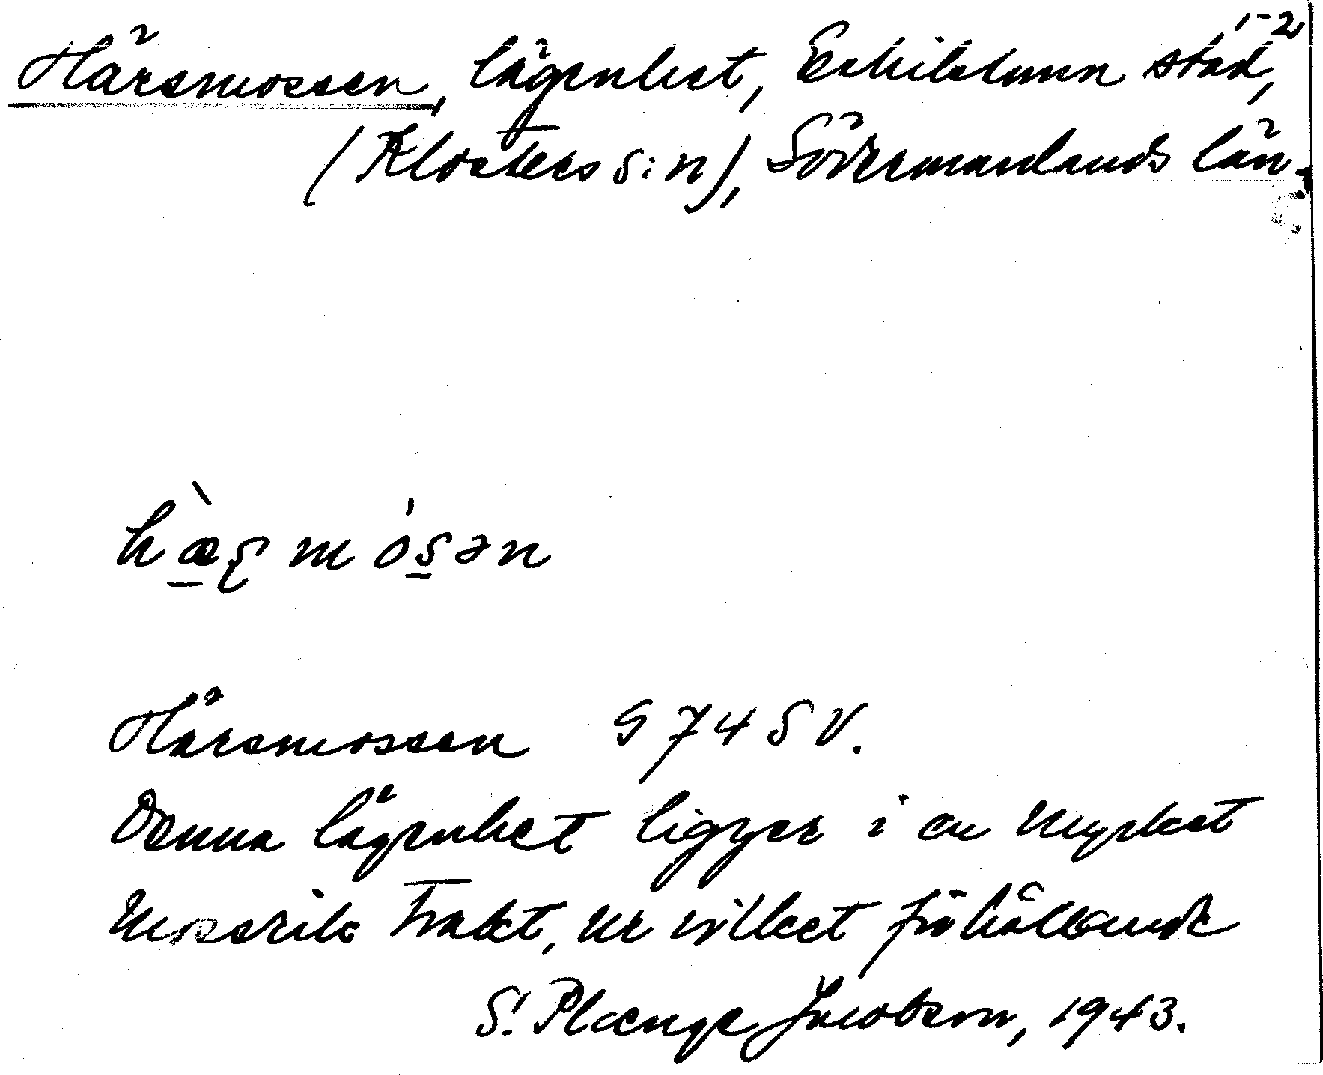 1-2
Härsmossen, lägenhet, Eskilstuna stad,
(Klosters s:n), Södermanlands län.
hæʂmósən
Härsmossen G 74 SV.
Denna lägenhet ligger i en mycket
mossrik trakt, ur vilket förhållande
S. Plænge Jacobson, 1943.